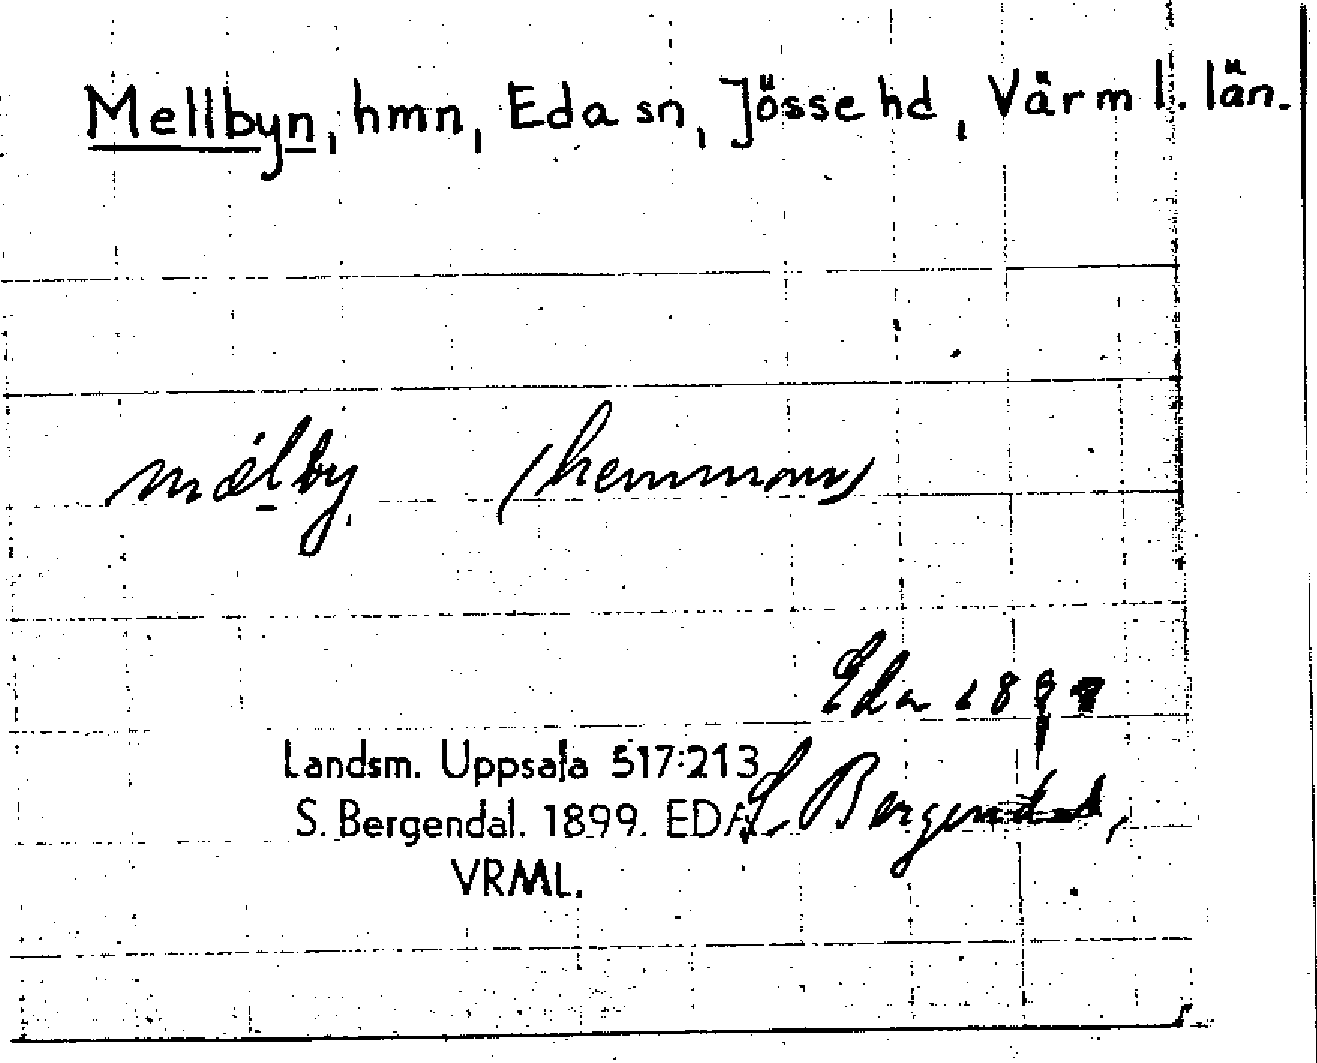 Mellbyn, hmn, Eda sn, Jösse hd, Värml. län.
mælby (hemman)
Eda 1899
Landsm. Uppsala 517:213
S. Bergendal. 1899. EDA
S. Bergendal,
VRML.